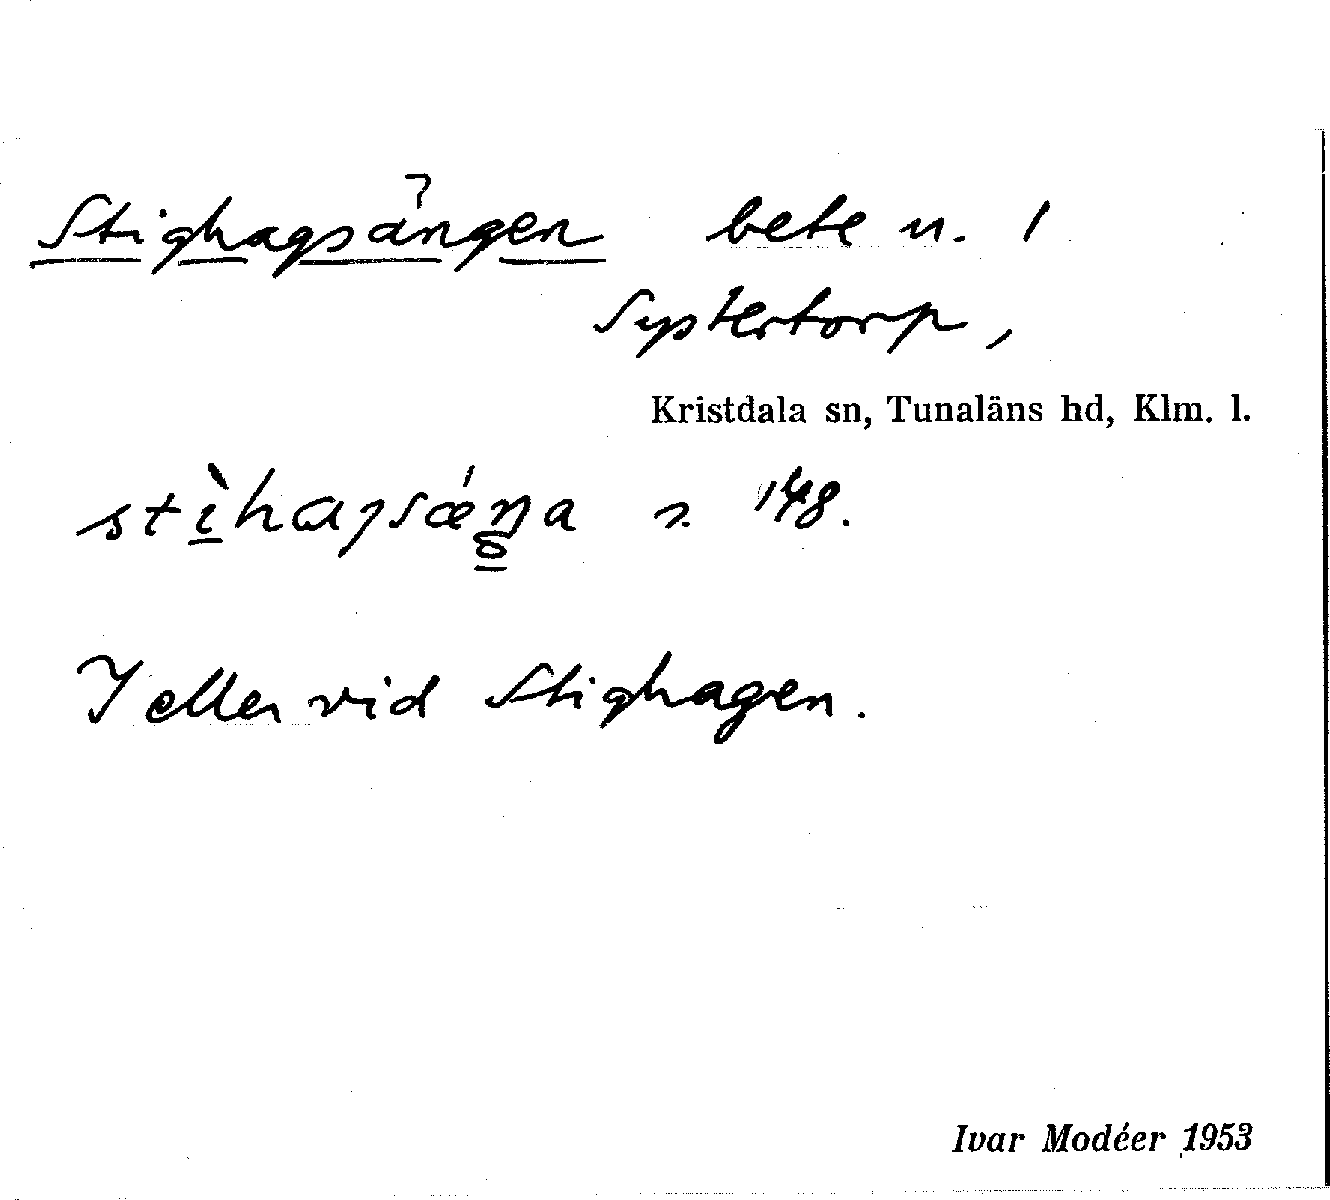 Stighagsängen bete u. 1
Systertorp,
Kristdala sn, Tunaläns hd, Klm. l.
148.
I eller vid Stighagen.
Ivar Modéer 1953